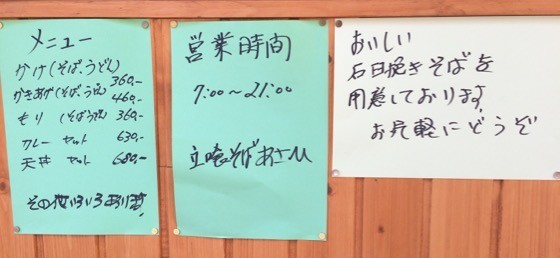 メニュー
かけ(そば、うどん)
360,-
かきあげ(そば、うどん)
460,-
もり (そばうどん) 360,-
カレー セット 630,-
天丼 セット 680,-
その他いろいろあります
営業時間
7:00～21:00
立喰そばあさひ
おいしい
石臼挽きそばを
用意しております
お気軽にどうぞ